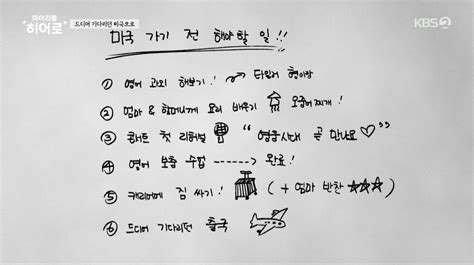 마이 리틀
히어로
드디어 기다리던 미국으로
KBS2
미국 가기 전 해야할 일!!
① 영어 과외 해보기! → 타일러 형이랑
② 엄마 & 할머니께 요리 배우기 오징어찌개!
③ 콘서트 첫 리허설 "영웅시대 곧 만나요♡"
④ 영어 보충 수업 -----> 완료!
⑤ 캐리어에 짐 싸기! (+ 엄마 반찬 ★★★)
⑥ 드디어 기다리던 출국